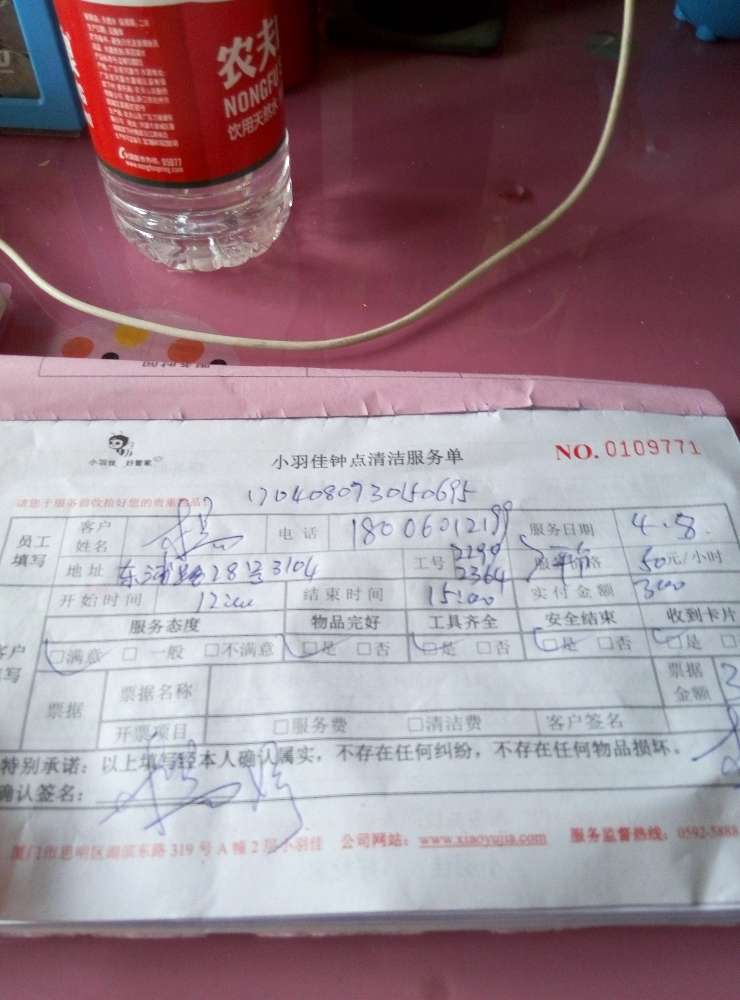 农夫
NONGFU
饮用天然水
95077
www.nongfuspring.com
小羽佳 好管家
小羽佳钟点清洁服务单
NO. 0109771
请您于服务前收捡好您的贵重物品
170408073050695
员工填写
客户姓名
电话 18006012199
服务日期 4.8
地址 28号3104
工号 2290 2364
50元/小时
开始时间 12:00
结束时间 15:00
实付金额 300
服务态度 物品完好 工具齐全 安全结束 收到卡片
□满意 □一般 □不满意 □是 □否 □是 □否 □是 □否 □是
票据 票据名称 票据金额
开票项目 □服务费 □清洁费 客户签名
特别承诺：以上填写经本人确认属实，不存在任何纠纷，不存在任何物品损坏。
确认签名：
厦门市思明区湖滨东路319号A幢2层小羽佳 公司网站：www.xiaoyujia.com 服务监督热线：0592-5888